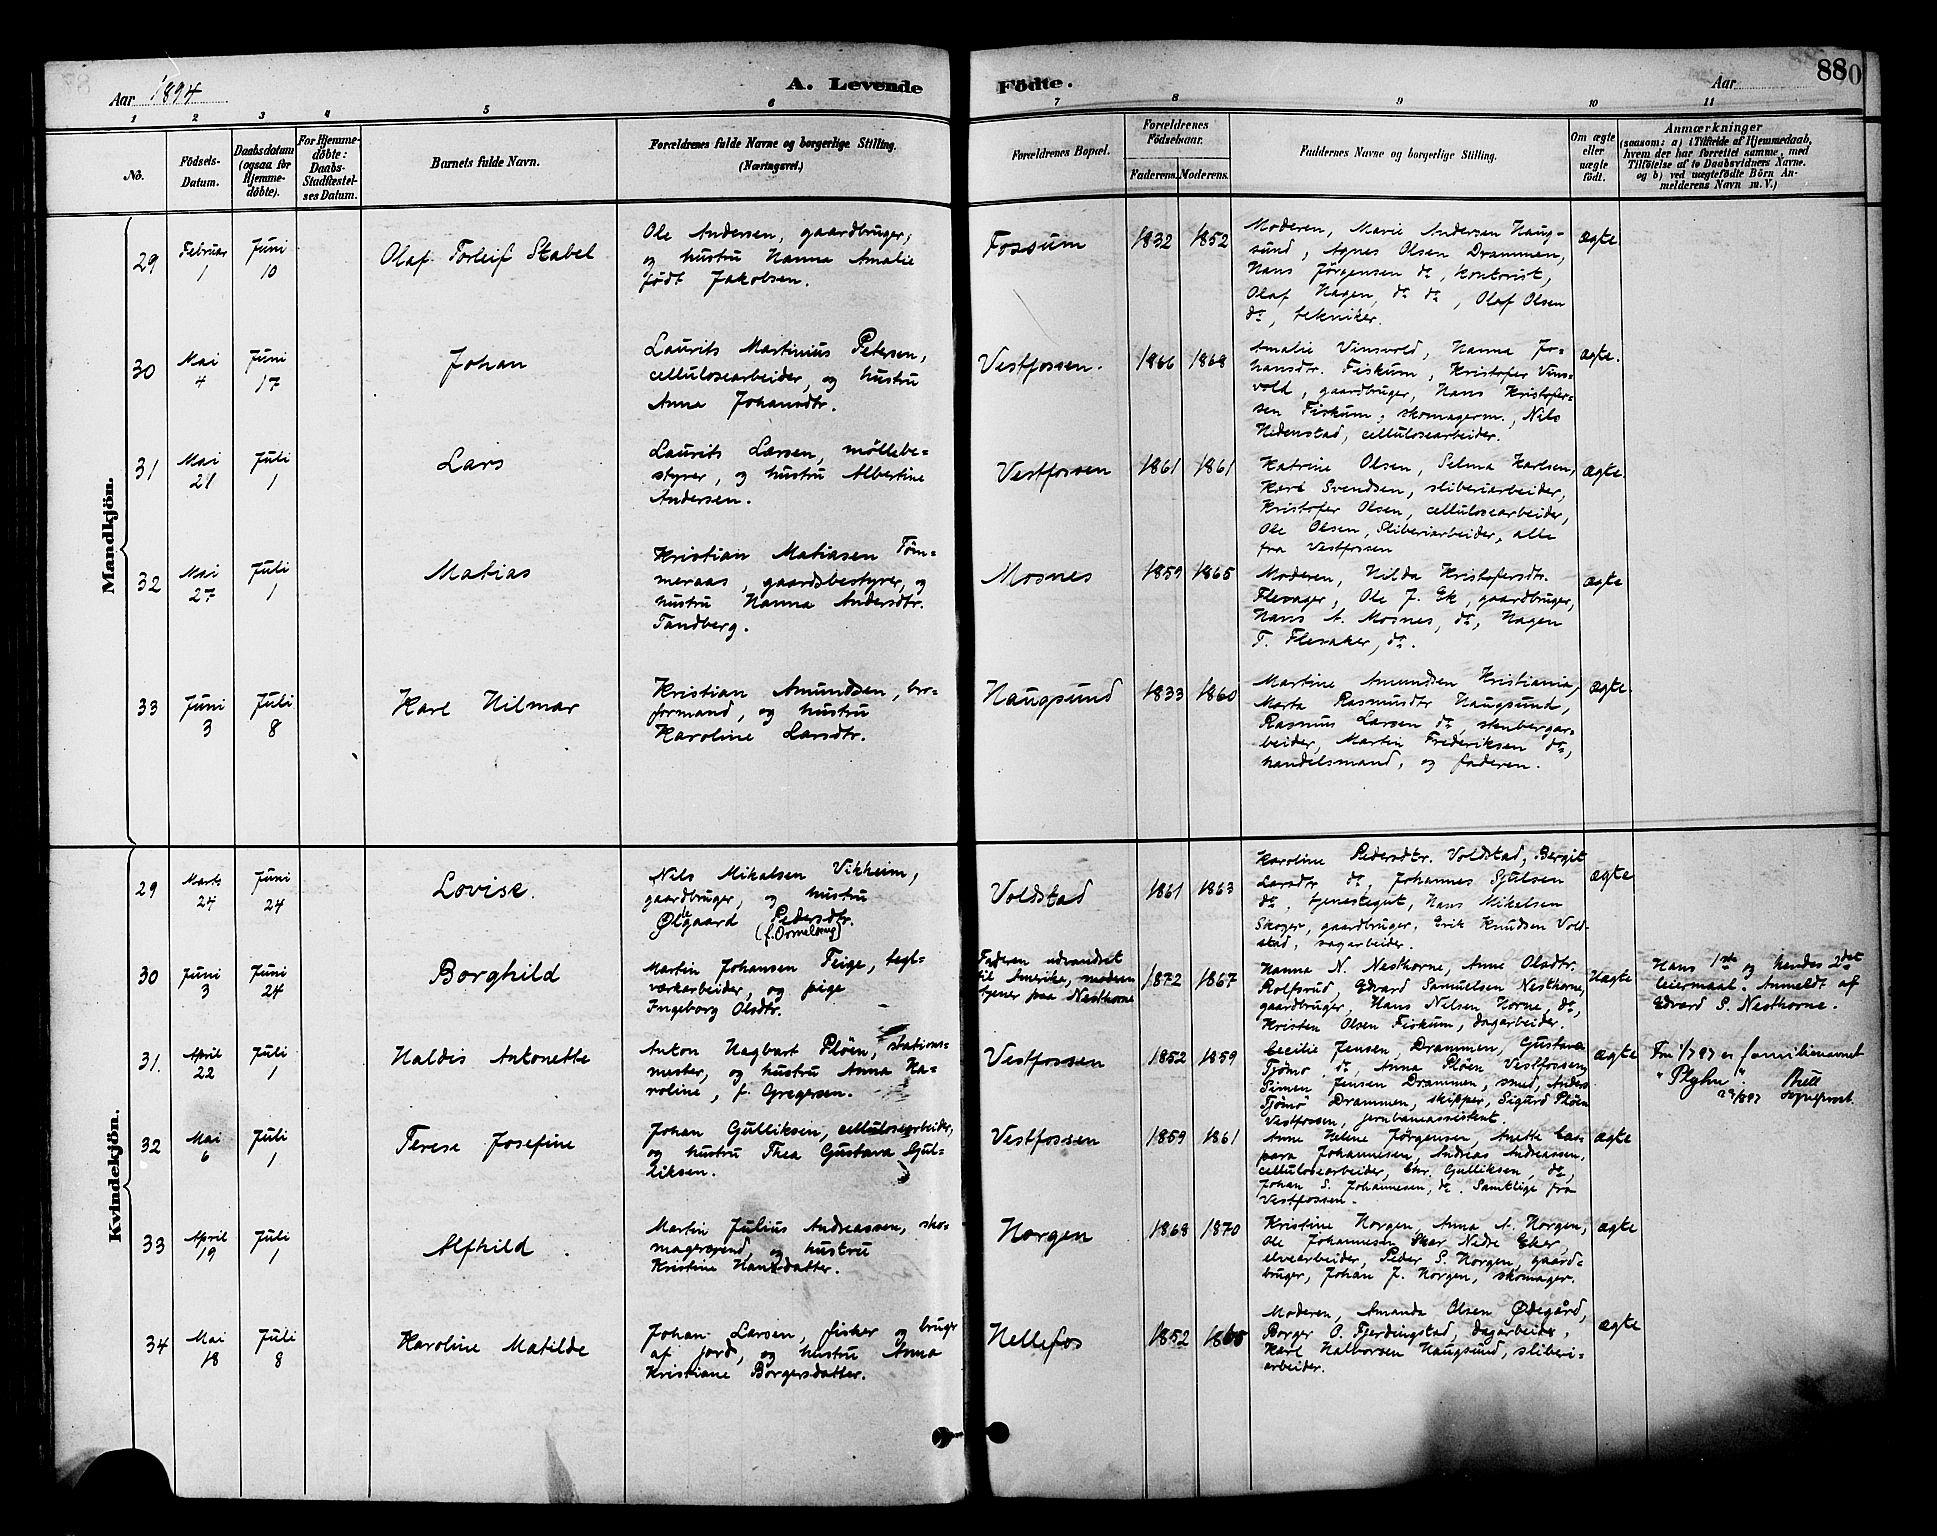 Aar 1894
A. Levende
Födte.
Aar
88
1 2 3 4 5 6 7 8 9 10 11
No.
Födsels-
Datum.
Daabsdatum
(ogsaa for
Hjemme-
döbte).
For Hjemme-
döbte:
Daabs-
Stadfæstel-
ses Datum.
Barnets fulde Navn.
Forældrenes fulde Navne og borgerlige Stilling.
(Næringsvei.)
Forældrenes Bopæl.
Forældrenes
Födselsaar.
Faderens. Moderens.
Faddernes Navne og borgerlige Stilling.
Om ægte
eller
uægte
födt.
Anmærkninger
(saasom: a) i Tilfælde af Hjemmedaab,
hvem der har forrettet samme, med
Tilföielse af to Daabsvidners Navne.
og b) ved uægtefödte Börn An-
melderens Navn m. V.)
Mandkjön.
29
Februar
1
Juni
10
Olaf Torleif Stabel
Ole Andersen, gaardbruger,
og hustru Hanna Amalie
født Jakobsen.
Fossum
1832
1852
Moderen, Marie Andersen Haug-
sund, Agnes Olsen Drammen,
Hans Jörgensen do, kontorist,
Olaf Hagen, do do, Olaf Olsen
do, tekniker.
ægte
30
Mai
4
Juni
17
Johan
Laurits Martinius Petersen,
cellulosearbeider, og hustru
Anna Johansdtr.
Vestfossen.
1866
1868
Amalie Vinsvold, Hanna Jo-
hansdtr. Fiskum, Kristofer Vins-
vold, gaardbruger, Hans Kristofer-
sen Fiskum, skomagerm., Nils
Hidenstad, cellulosearbeider.
ægte.
31
Mai
21
Juli
1
Lars
Laurits Larsen, möllebe-
styrer, og hustru Albertine
Andersen.
Vestfossen
1861
1861
Katrine Olsen, Selma Karlsen,
Karl Svendsen, sliberiarbeider,
Kristofer Olsen, cellulosearbeider,
Ole Olsen, Sliberiarbeider, alle
fra Vestfossen
ægte.
32
Mai
27
Juli
1
Matias
Kristian Matiasen Töm-
meraas, gaardsbestyrer, og
hustru Hanna Andersdtr.
Tandberg.
Mosnes
1859
1865
Moderen, Hilda Kristofersdtr.
Flevager, Ole J. Ek, gaardbruger,
Hans A. Mosnes, do, Hagen
T. Flesaker, do.
ægte
33
Juni
3
Juli
8
Karl Hilmar
Kristian Amundsen, bro-
formand, og hustru
Karoline Larsdtr.
Haugsund
1833
1860
Martine Amundsen Kristiania,
Marta Rasmusdtr Haugsund,
Rasmus Larsen do, stenbergar-
beider, Martin Frederiksen do,
handelsmand, og faderen.
ægte.
Kvindekjön.
29
Marts
24
Juni
24
Lovise.
Nils Mikalsen Vikheim,
gaardbruger, og hustru
Ølgaard Pedersdtr.
Voldstad
1861
1863
Karoline Pedersdtr. Voldstad, Bergit
Larsdtr do, Johannes Gjulsen
do, tjenestegut, Hans Mikalsen
Skoger, gaardbruger, Erik Knudsen Vold-
stad, sagarbeider.
ægte
30
Juni
3
Juni
24
Borghild
Martin Johansen Teige, tegl-
værkarbeider, og pige
Ingeborg Olsdtr.
Faderen udvandret
til Amerika, moderen
tjener paa Nesthorne
1872
1867
Hanna N. Nesthorne, Anne Olsdtr.
Rolfsrud, Edvard Samuelsen Nesthorne,
gaardbruger, Hans Nilsen Horne, do,
Kristen Olsen Fiskum, dagarbeider.
Uægte
Hans 1ste og hendes 2det
leiermaal. Anmeldt af
Edvard S. Nesthorne.
31.
April
22
Juli
1
Haldis Antonette
Anton Hagbart Plöen, stations-
mester, og hustru Anna Ka-
roline, f. Gregersen.
Vestfossen
1852
1859
Cecilie Jensen, Drammen, Gustava
Tjömö, do, Anna Plöen Vestfossen,
Simen Jensen Drammen, smed, Anders
Tjömö Drammen, skipper, Sigurd Plöen
Vestfossen, jernbaneassistent.
ægte
Fra 1/7 97 er familienavnet
"Plyhn".
32
Mai
6
Juli
1
Terese Josefine
Johan Gulliksen, cellulosearbeider,
og hustru Thea Gustava Gjul-
liksen.
Vestfossen
1859
1861
Anne Helene Jörgensen, Anette Cas-
para Johannesen, Andreas Andreassen,
cellulosearbeider, Chr. Gulliksen, do,
Johan S. Johannesen, do. Samtlige fra
Vestfossen.
ægte
33
April
19
Juli
1
Alfhild
Martin Julius Andreassen, sko-
magersvend, og hustru
Kristine Hansdatter.
Horgen
1868
1870
Kristine Horgen, Anna A. Horgen,
Ole Johannesen Skar Nedre Eker,
elvearbeider, Peder S. Horgen, gaard-
bruger, Johan J. Horgen, skomager.
ægte
34
Mai
18
Juli
8
Karoline Matilde
Johan Larsen, fisker og bruger
af jord, og hustru Anna
Kristiane Borgersdatter.
Hellefos
1852
1865
Moderen, Amanda Olsen Ødegård,
Borger O. Fjerdingstad, dagarbeider,
Karl Halvorsen Haugsund, sliberi-
arbeider.
ægte